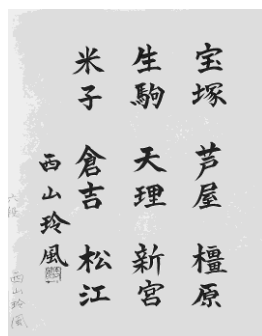 宝塚 芦屋 橿原
生駒 天理 新宮
米子 倉吉 松江
西山玲風
六段
西山玲風